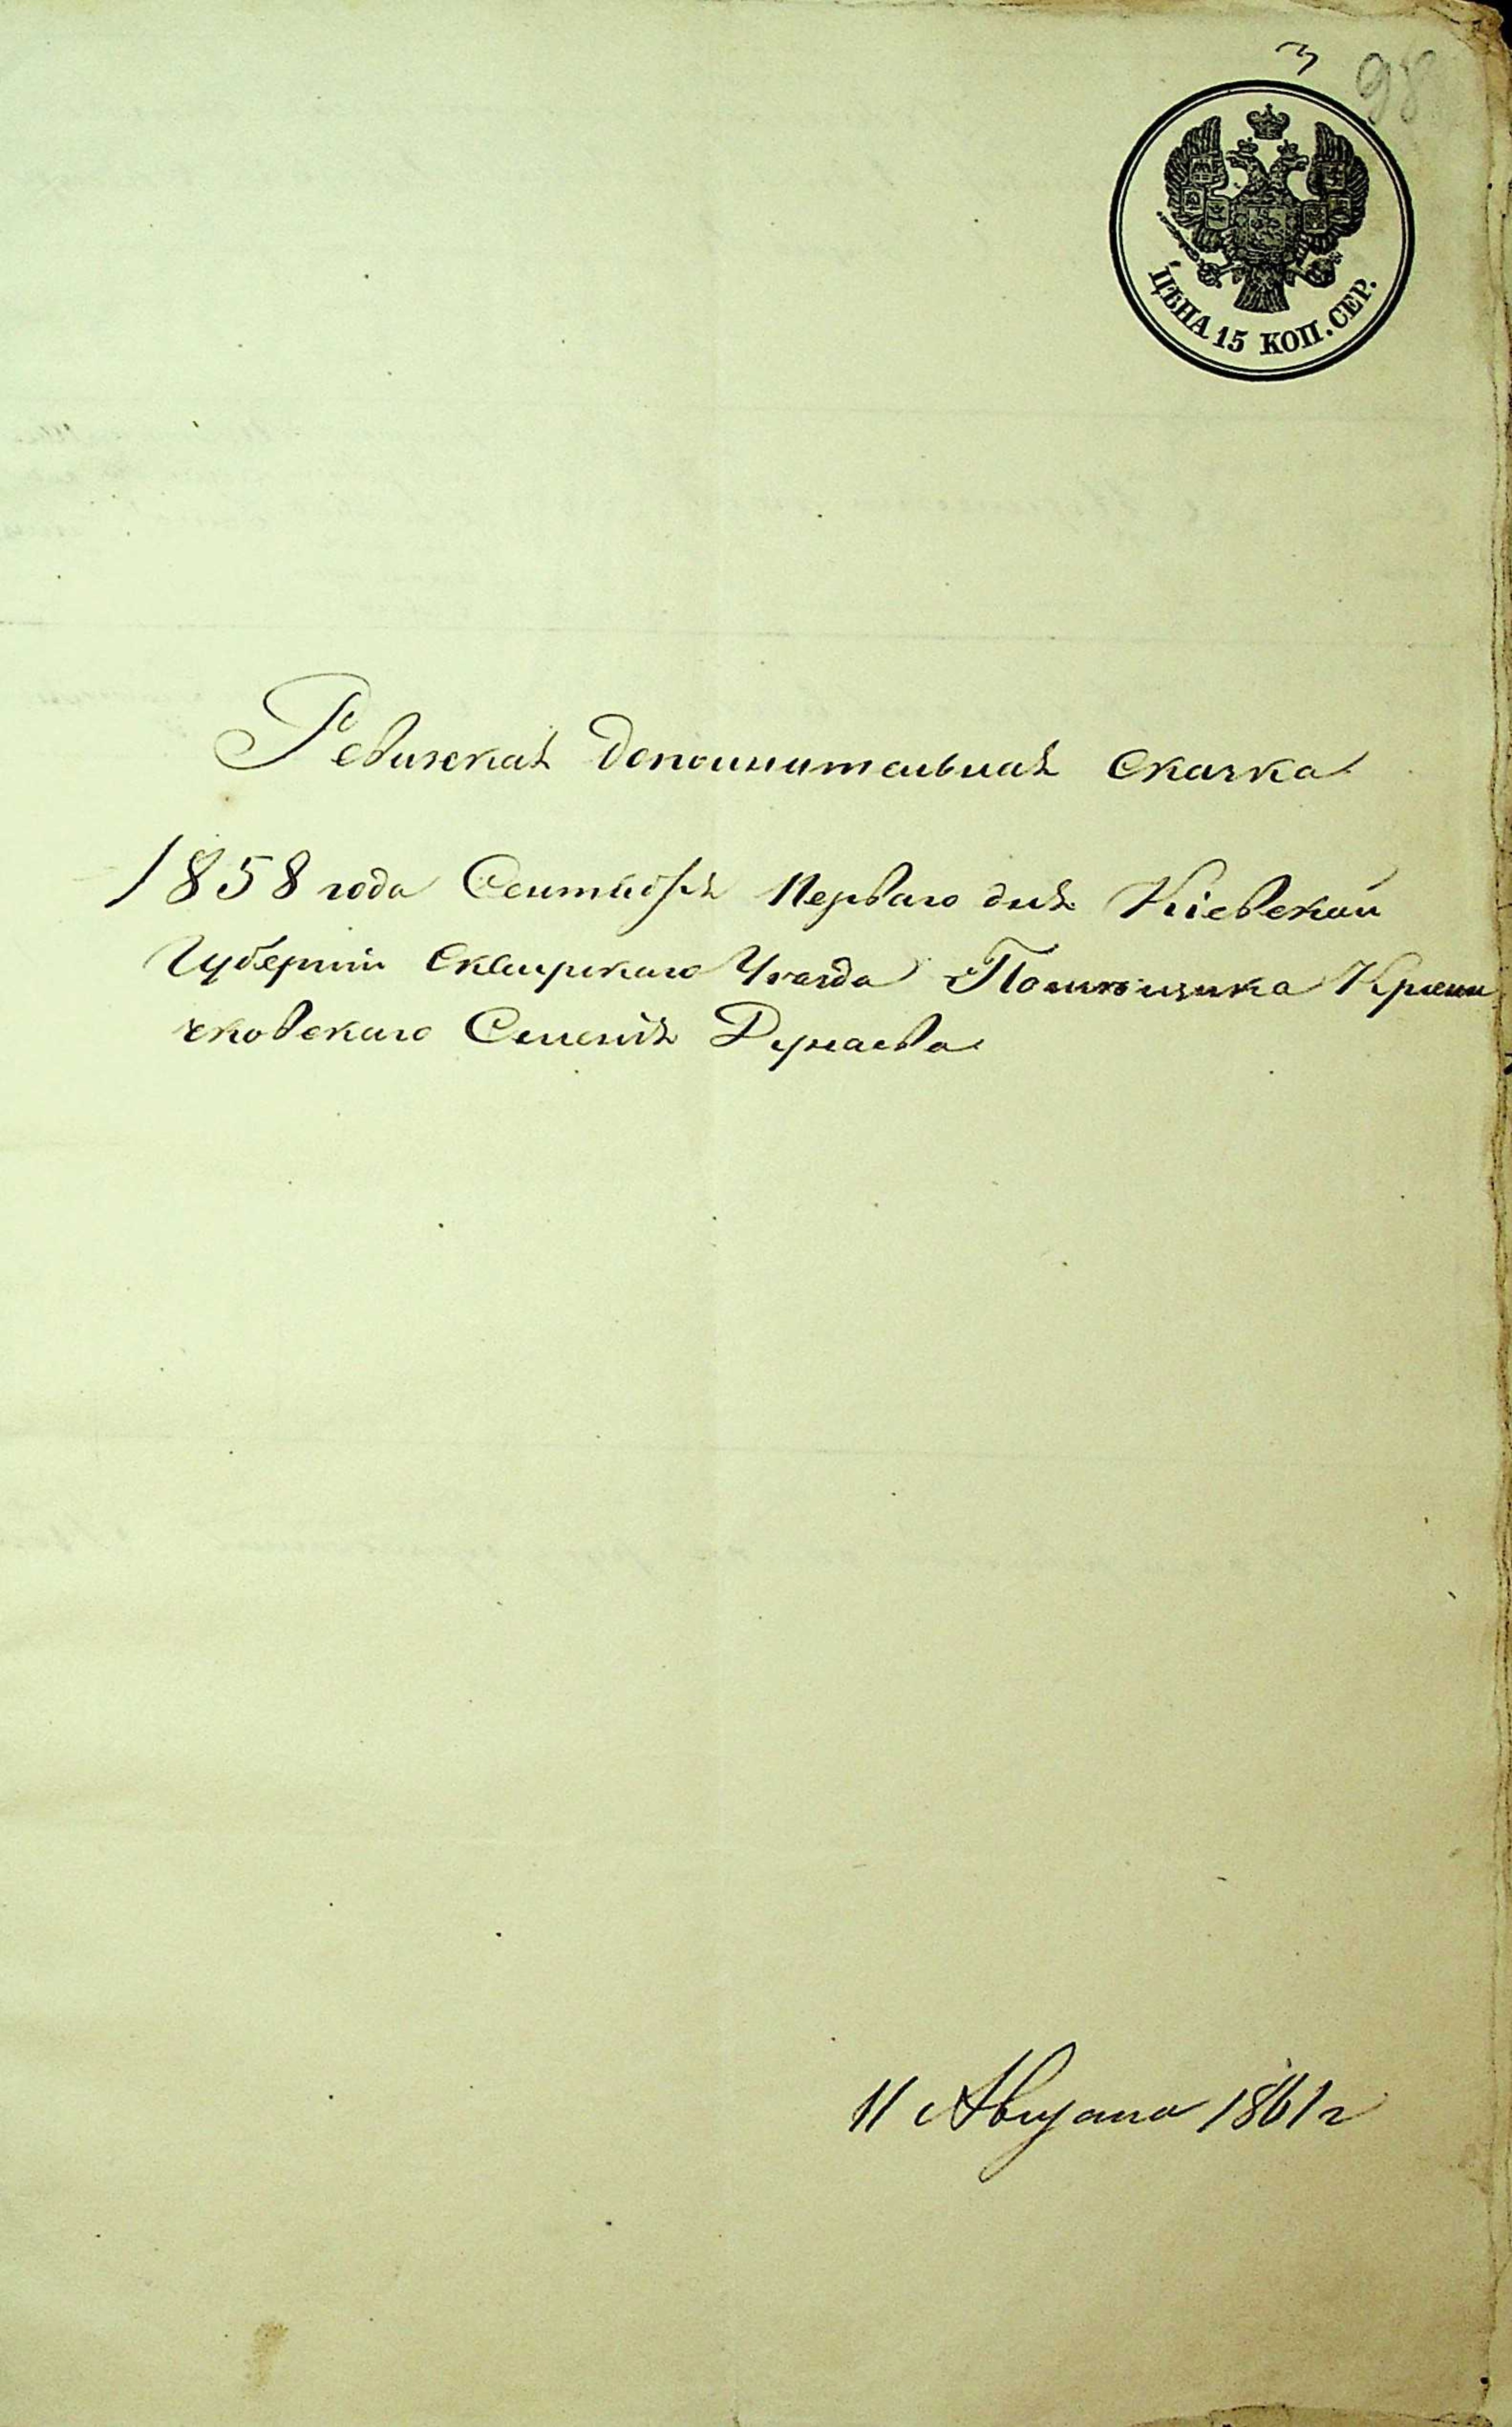 3
98
ЦѢНА 15 КОП. СЕР.
Ревизская дополнительная сказка
1858 года Сентября Перваго дня Кіевской
Губерніи Сквирскаго Уезда Помѣщика
Семенія
11 Августа 1861 г